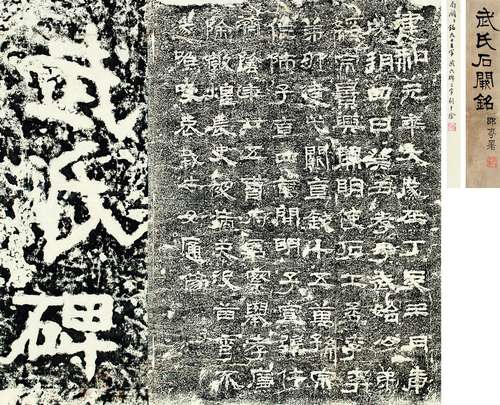 武氏石闕銘
建和元年大歲在丁亥三月庚
戌朔四日癸丑孝子武始公弟
綏宗景興開明使石工孟孚李
弟卯造此闕直錢十五萬孫宗
作師子直四萬開明子宣張仕
濟陰年廿五曹府君察舉孝廉
除敦煌長史被病夭歿苗秀不
遂嗚呼哀哉士女痛傷
武氏碑